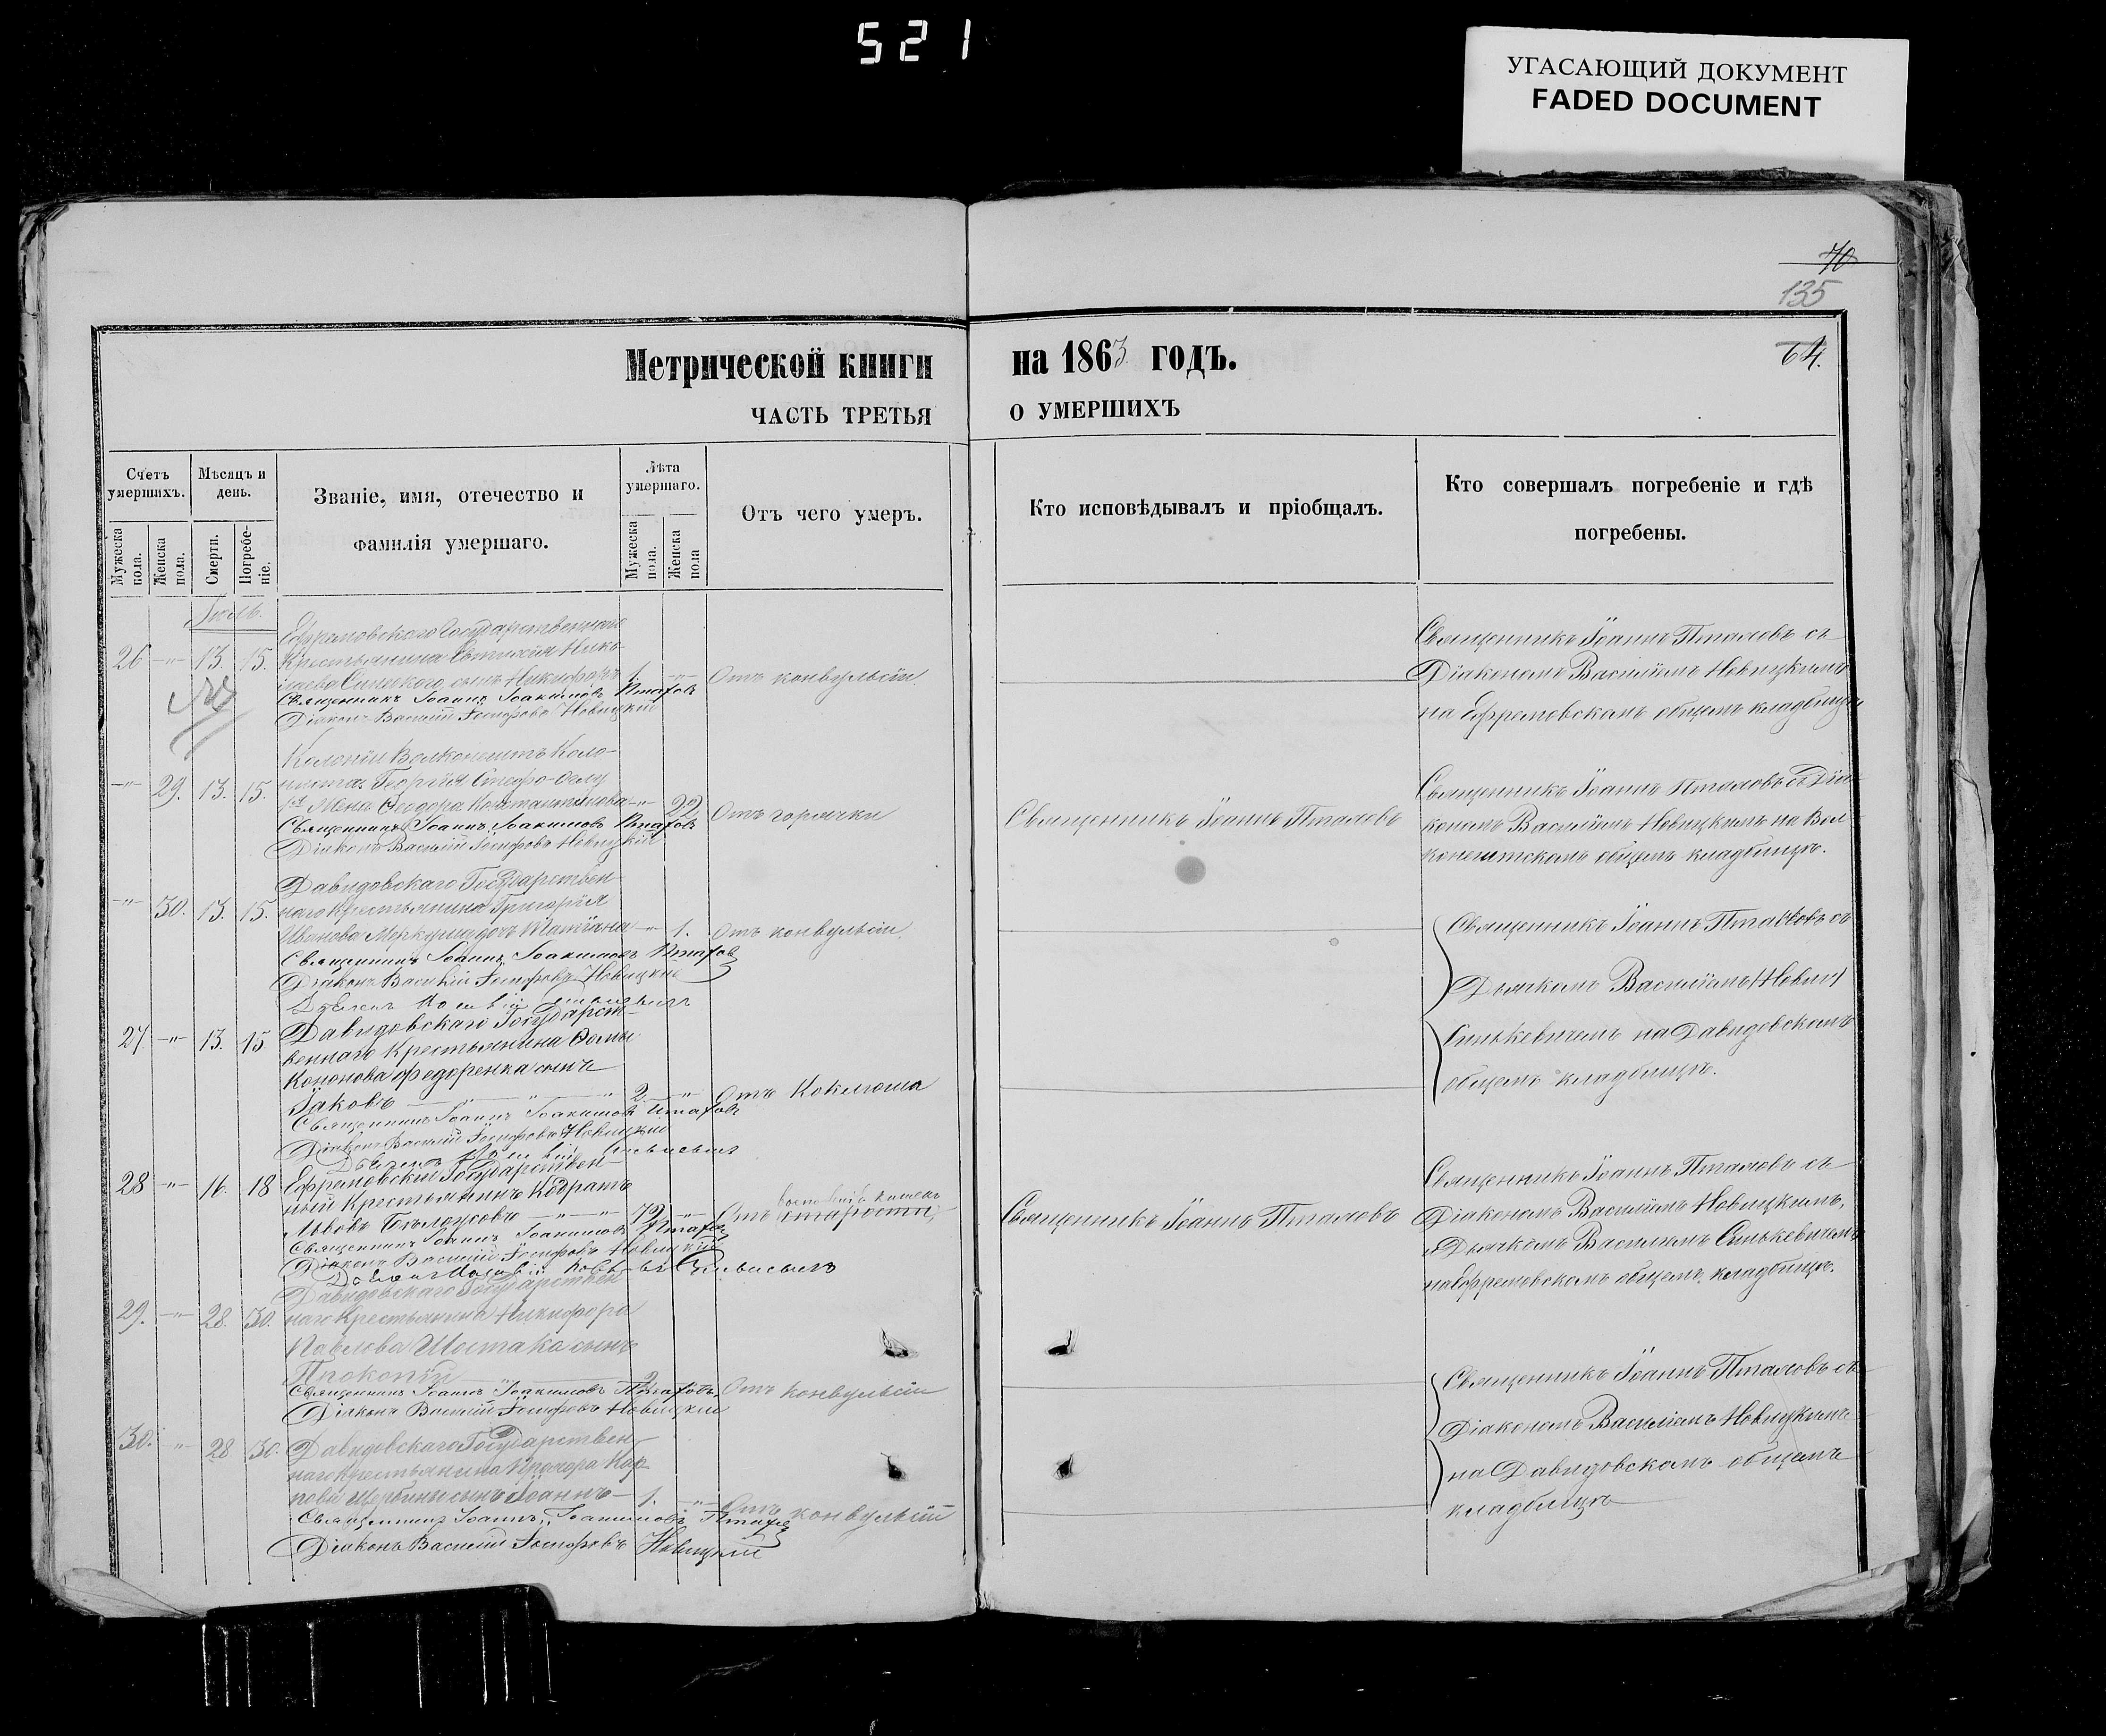 521
УГАСАЮЩИЙ ДОКУМЕНТ
FADED DOCUMENT
70
135
64.
Метрической книги на 1863 годъ.
ЧАСТЬ ТРЕТЬЯ О УМЕРШИХЪ
Счетъ умершихъ.
Мужеска пола.
Женска пола.
Мѣсяцъ и день.
Смерти.
Погребе-ніе.
Званіе, имя, отечество и
фамилія умершаго.
Лѣта умершаго.
Мужеска пола.
Женска пола
Отъ чего умеръ.
Кто исповѣдывалъ и пріобщалъ.
Кто совершалъ погребеніе и гдѣ
погребены.
26 -"- 13. 15.
Ефремовскаго Государственнаго
Крестьянина
сынъ Никифоръ 1. -"- Отъ конвульсіи
Священникъ Іоаннъ Іоакимовъ Птаховъ
Діаконъ Василій Іосифовъ Новицкій
Священникъ Іоаннъ Птаховъ съ
Діакономъ Василіемъ Новицкимъ
на Ефремовскомъ общемъ кладбищѣ
-"- 29. 13. 15.
Колоніи Волконештъ Коло-
ниста Георгія
Жена Ѳеодора Константинова -"- 22 Отъ горячки
Священникъ Іоаннъ Іоакимовъ Птаховъ
Діаконъ Василій Іосифовъ Новицкій
Священникъ Іоаннъ Птаховъ
Священникъ Іоаннъ Птаховъ съ Діа-
кономъ Василіемъ Новицкимъ на Вол-
конештскомъ общемъ кладбищѣ.
-"- 30. 13. 15.
Давидовскаго Государствен-
наго Крестьянина Григорія
Иванова дочь Татіяна -"- 1. Отъ конвульсіи
Священникъ Іоаннъ Іоакимовъ Птаховъ
Діаконъ Василій Іосифовъ Новицкій
Священникъ Іоаннъ Птаховъ съ
Дьячкомъ Василіемъ
Синькевичемъ на Давидовскомъ
общемъ кладбищѣ.
27 -"- 13. 15
Давидовскаго Государст-
веннаго Крестьянина Ѳомы
Кононова Федоренка сынъ
Іаковъ 2. -"- Отъ Коклюша
Священникъ Іоаннъ Іоакимовъ Птаховъ
Діаконъ Василій Іосифовъ Новицкій
28 -"- 16. 18
Ефремовскій Государствен-
ный Крестьянинъ Кодратъ
Львовъ 72 -"- Отъ старости
Священникъ Іоаннъ Іоакимовъ Птаховъ
Діаконъ Василій Іосифовъ Новицкій
Священникъ Іоаннъ Птаховъ
Священникъ Іоаннъ Птаховъ съ
Діакономъ Василіемъ Новицкимъ,
и Дьячкомъ Василіемъ Синькевичемъ
на Ефремовскомъ общемъ кладбищѣ.
29. -"- 28. 30.
Давидовскаго Государствен-
наго Крестьянина Никифора
Павлова Шостака сынъ
Прокопій 2 Отъ конвульсіи
Священникъ Іоаннъ Іоакимовъ Птаховъ
Діаконъ Василій Іосифовъ Новицкій
Священникъ Іоаннъ Птаховъ съ
Діакономъ Василіемъ Новицкимъ
на Давидовскомъ общемъ
кладбищѣ
30. " 28 30.
Давидовскаго Государствен-
наго Крестьянина Прохора Кар-
пова Щербины сынъ Іоаннъ 1. -"- Отъ конвульсій
Священникъ Іоаннъ Іоакимовъ Птаховъ
Діаконъ Василій Іосифовъ Новицкій